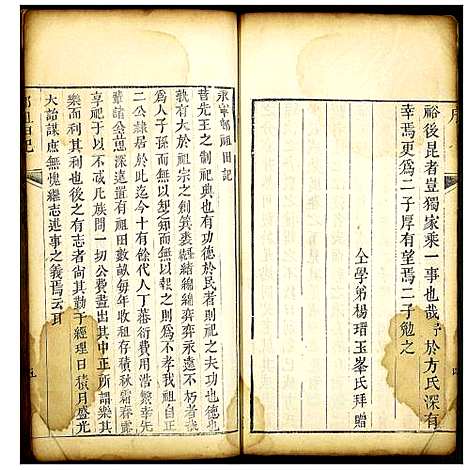 裕後昆者豈獨家乘一事也哉予於方氏深有
幸焉更為二子厚有望焉二子勉之
仝學弟楊瑨玉峯氏拜贈
永寧郫祖田記
昔先王之制祀典也有功德於民者則祀之夫功德也
孰有大於祖宗之創箕裘緒綿綿弈弈永永勿替也哉
為人子孫不思以知而無以報之則為不孝矣我祖自正
二公隷居於此迄今十有餘代人丁蕃衍費用浩繁幸先
輩公立深遠置有祖田數畝每年收租存積秋霜春露
享祀于以或凡族間一切公費盡出其中所謂樂其
樂而利其利也後之有志者尚其勤于經理日積月盛光
大詒謀庶無愧繼志述事之義焉云耳